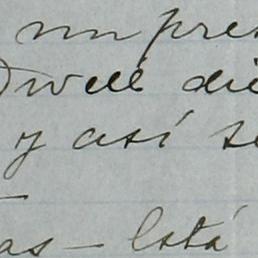 un pres
Dwell die
y así se
as - Está